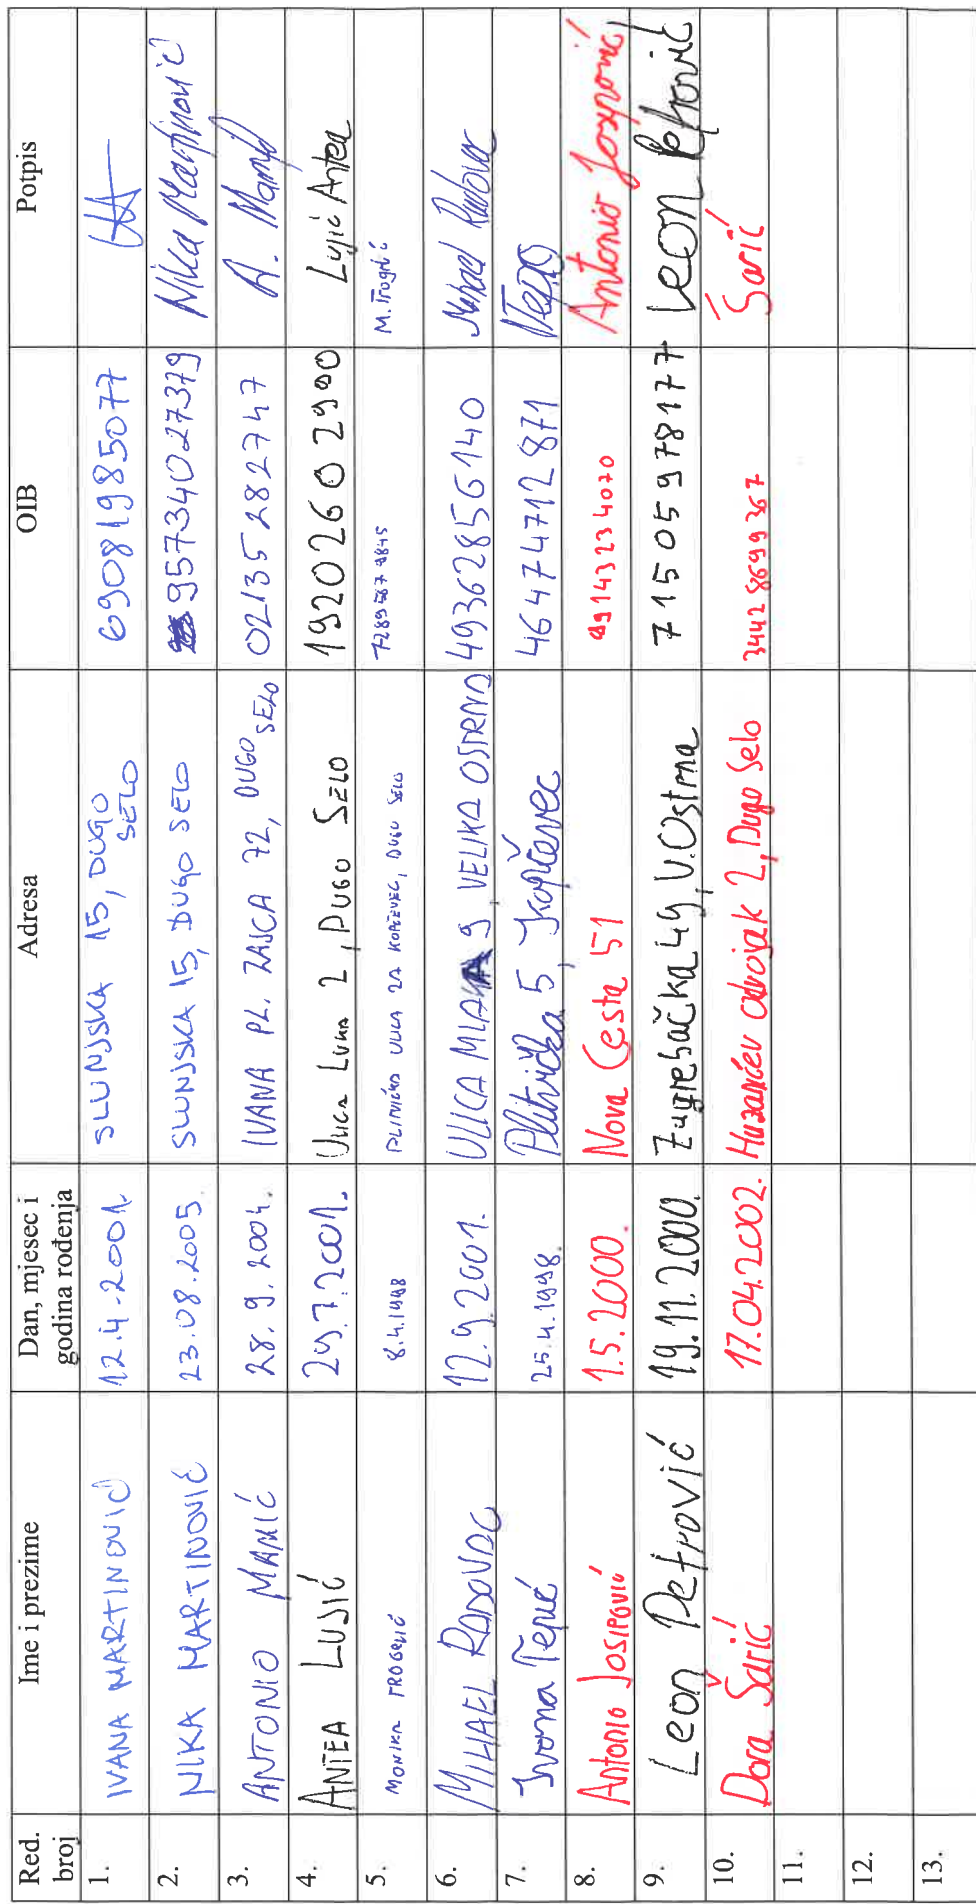 Red. broj Ime i prezime Dan, mjesec i godina rođenja Adresa OIB Potpis
1. IVANA MARTINOVIĆ 12.4.2001. SLUNJSKA 15, DUGO SELO 69081985077
2. NIKA MARTINOVIĆ 23.08.2005. SLUNJSKA 15, DUGO SELO 95734027379 Nika Martinović
3. ANTONIO MAMIĆ 28.9.2004. IVANA PL. ZAJCA 72, DUGO SELO 02135282747 A. Mamić
4. ANTEA LUJIĆ 29.7.2001. ULICA LUKA 2, DUGO SELO 19202602990 Lujić Antea
5. MONIKA TROGRLIĆ 8.4.1998 PLITVIČKA ULICA 27 KOPČEVEC, DUGO SELO M. Trogrlić
6. MIHAEL RADOVAC 12.9.2001. ULICA 9, VELIKA OSTRNA 49362856140 Mihael Radovac
7. Ivona Tepić 25.4.1998. Plitvička 5, Kopčevec 46474712871
8. Antonio JOSIPOVIĆ 1.5.2000. Nova Cesta 51 99143234070 Antonio Josipović
9. Leon Petrović 19.11.2000. Zagrebačka 49, V.Ostrna 71505978177 Leon Petrović
10. Dora Šarić 17.04.2002. Huzančev odvojak 2, Dugo Selo 34428699367 Šarić
11.
12.
13.